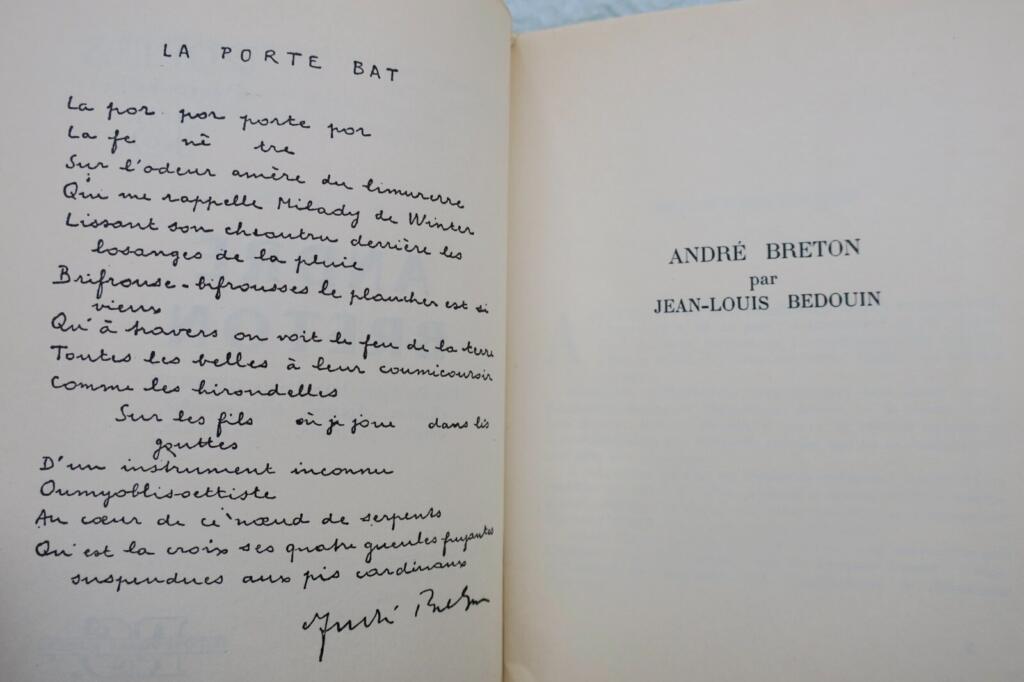 LA PORTE BAT
La por por porte por
La fe nê tre
Sur l'odeur amère du limurerre
Qui me rappelle Milady de Winter
Lissant son cheautru derrière les
losanges de la pluie
Brifrouse-bifrousses le plancher est si
vieux
Qu'à travers on voit le feu de la terre
Toutes les belles à leur coumicouroir
Comme les hirondelles
Sur les fils où je joue dans les
gouttes
D'un instrument inconnu
Oumyoblisoettiste
Au cœur de ce nœud de serpents
Qu'est la croix ses quatre gueules fuyantes
suspendues aux pis cardinaux
André Breton
ANDRÉ BRETON
par
JEAN-LOUIS BEDOUIN